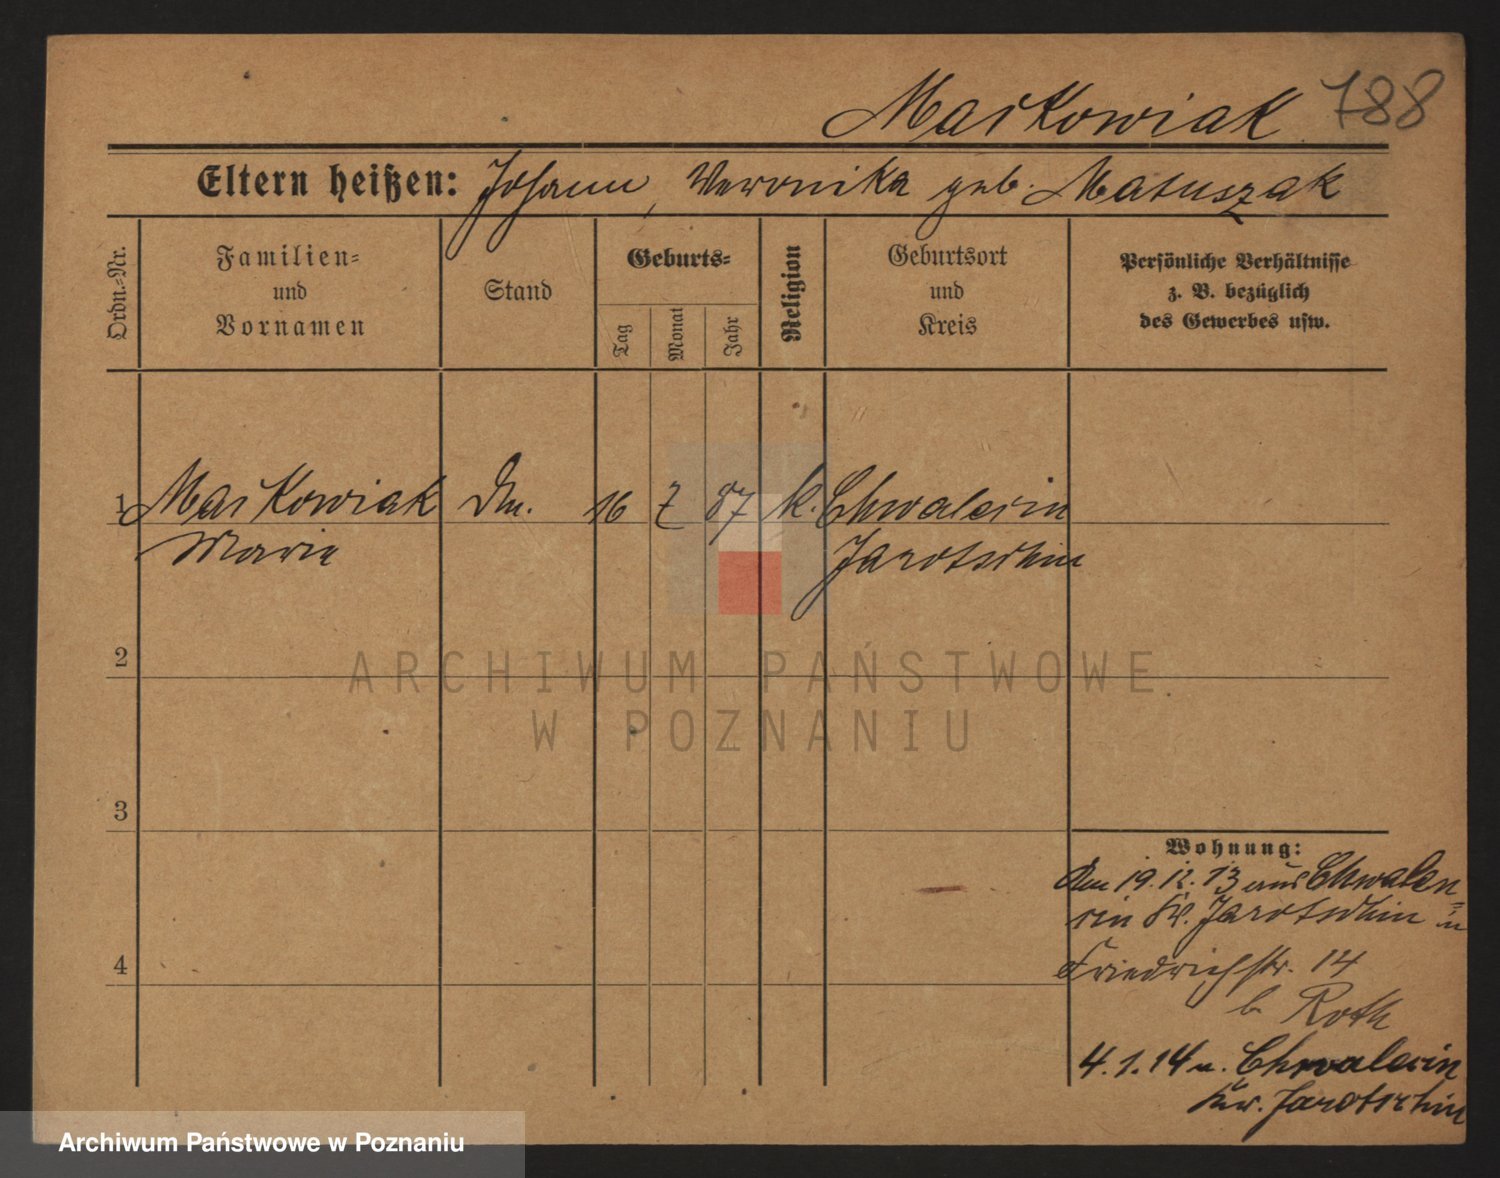 Markowiak 788
Eltern heißen: Johann, Veronika geb. Matuszak
Ordn.-Nr.
Familien-
und
Vornamen
Stand
Geburts-
Tag
Monat
Jahr
Religion
Geburtsort
und
Kreis
Persönliche Verhältnisse
z. B. bezüglich
des Gewerbes usw.
1 Markowiak 16 7 87 k. Chwalencin
Marie Jarotschin
2
ARCHIWUM PAŃSTWOWE
W POZNANIU
3
Wohnung:
19.12.13 aus Chwalen=
cin Kr. Jarotschin in
4
Friedrichstr. 14
b. Roth
4.1.14 n. Chwalencin
Jarotschin
Archiwum Państwowe w Poznaniu